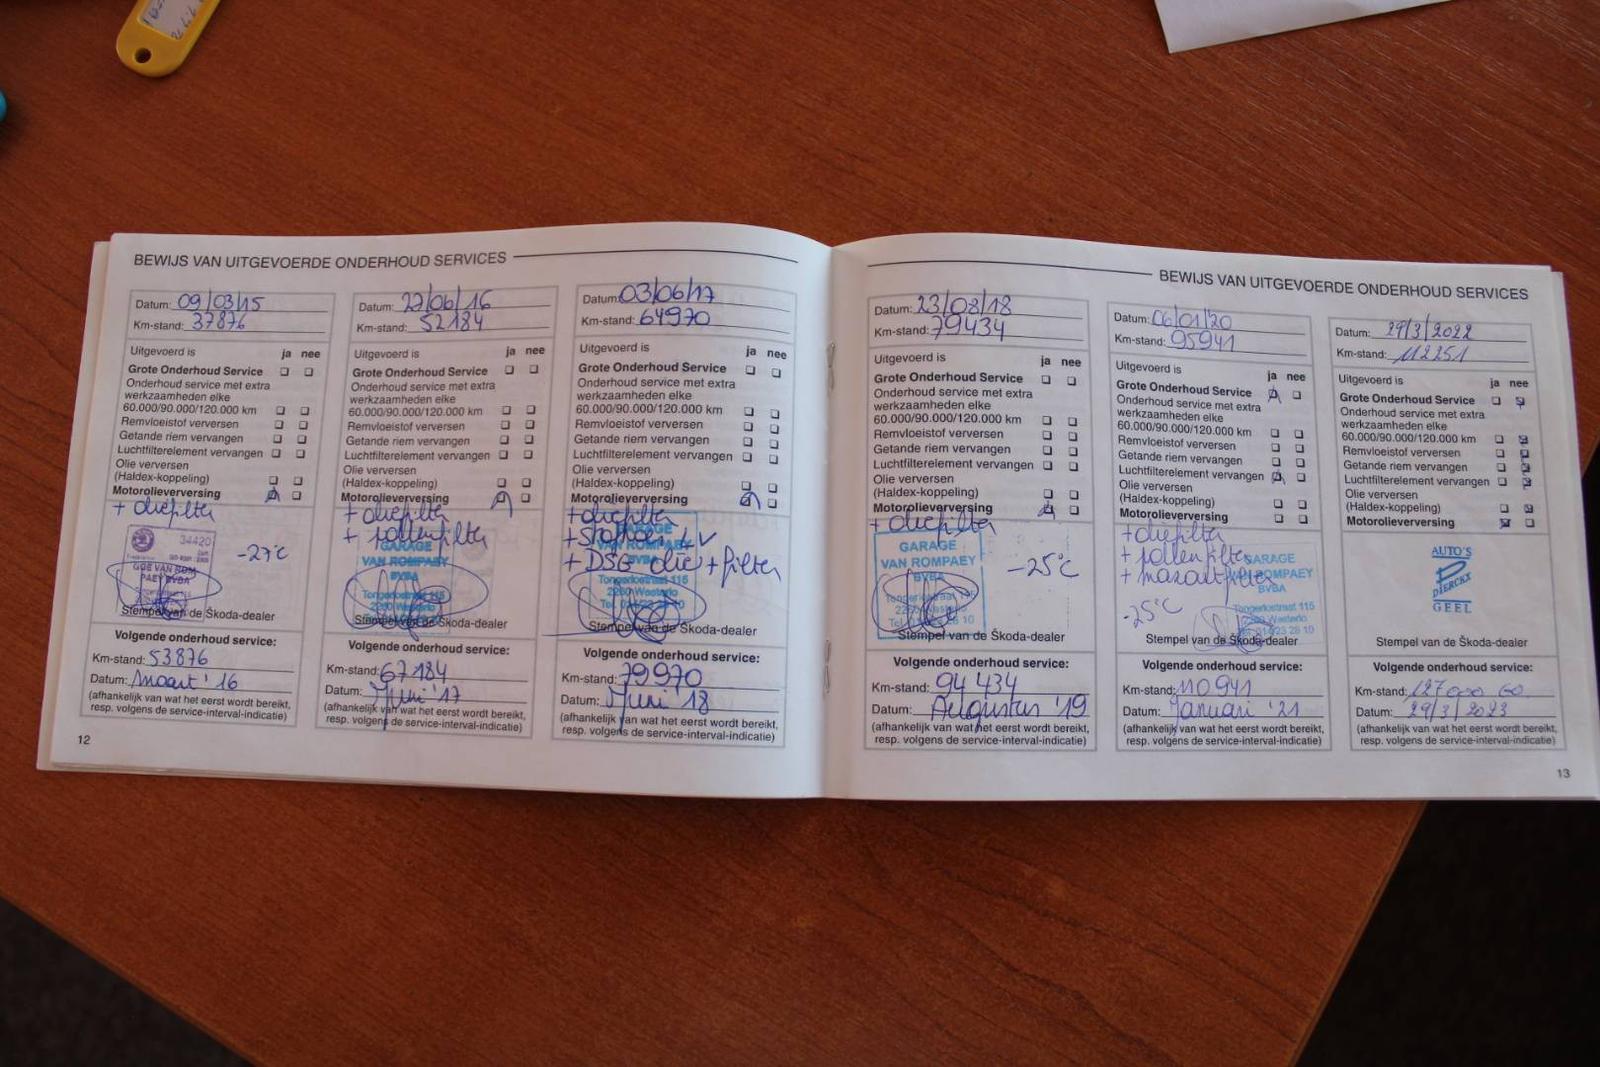 BEWIJS VAN UITGEVOERDE ONDERHOUD SERVICES
Datum: 09/03/15
Km-stand: 37876
Uitgevoerd is ja nee
Grote Onderhoud Service
Onderhoud service met extra
werkzaamheden elke
60.000/90.000/120.000 km
Remvloeistof verversen
Getande riem vervangen
Luchtfilterelement vervangen
Olie verversen
(Haldex-koppeling)
Motorolieverversing
+ oliefilter
34420
-27°C
Stempel van de Škoda-dealer
Volgende onderhoud service:
Km-stand: 53876
Datum: Maart '16
(afhankelijk van wat het eerst wordt bereikt,
resp. volgens de service-interval-indicatie)
12
Datum: 27/06/16
Km-stand: 52184
Uitgevoerd is ja nee
Grote Onderhoud Service
Onderhoud service met extra
werkzaamheden elke
60.000/90.000/120.000 km
Remvloeistof verversen
Getande riem vervangen
Luchtfilterelement vervangen
Olie verversen
(Haldex-koppeling)
Motorolieverversing
+ oliefilter
+ pollenfilter
GARAGE
VAN ROMPAEY
BVBA
Tongerlostraat 115
2260 Westerlo
Stempel van de Škoda-dealer
Volgende onderhoud service:
Km-stand: 67184
Datum: Juni '17
(afhankelijk van wat het eerst wordt bereikt,
resp. volgens de service-interval-indicatie)
Datum: 03/06/17
Km-stand: 64970
Uitgevoerd is ja nee
Grote Onderhoud Service
Onderhoud service met extra
werkzaamheden elke
60.000/90.000/120.000 km
Remvloeistof verversen
Getande riem vervangen
Luchtfilterelement vervangen
Olie verversen
(Haldex-koppeling)
Motorolieverversing
+ oliefilter
+ DSG olie + filter
GARAGE
VAN ROMPAEY
BVBA
Tongerlostraat 115
2260 Westerlo
Stempel van de Škoda-dealer
Volgende onderhoud service:
Km-stand: 79970
Datum: Juni 18
(afhankelijk van wat het eerst wordt bereikt,
resp. volgens de service-interval-indicatie)
BEWIJS VAN UITGEVOERDE ONDERHOUD SERVICES
Datum: 23/08/18
Km-stand: 79434
Uitgevoerd is ja nee
Grote Onderhoud Service
Onderhoud service met extra
werkzaamheden elke
60.000/90.000/120.000 km
Remvloeistof verversen
Getande riem vervangen
Luchtfilterelement vervangen
Olie verversen
(Haldex-koppeling)
Motorolieverversing
+ oliefilter
GARAGE
VAN ROMPAEY
BVBA
Tongerlostraat 115
2260 Westerlo
-25°C
Stempel van de Škoda-dealer
Volgende onderhoud service:
Km-stand: 94434
Datum: Augustus '19
(afhankelijk van wat het eerst wordt bereikt,
resp. volgens de service-interval-indicatie)
Datum: 06/01/20
Km-stand: 95941
Uitgevoerd is ja nee
Grote Onderhoud Service
Onderhoud service met extra
werkzaamheden elke
60.000/90.000/120.000 km
Remvloeistof verversen
Getande riem vervangen
Luchtfilterelement vervangen
Olie verversen
(Haldex-koppeling)
Motorolieverversing
+ oliefilter
+ pollenfilter
+ mazoutfilter
-25°C
GARAGE
VAN ROMPAEY
BVBA
Tongerlostraat 115
2260 Westerlo
Stempel van de Škoda-dealer
Volgende onderhoud service:
Km-stand: 110941
Datum: Januari '21
(afhankelijk van wat het eerst wordt bereikt,
resp. volgens de service-interval-indicatie)
Datum: 29/3/2022
Km-stand: 112251
Uitgevoerd is ja nee
Grote Onderhoud Service
Onderhoud service met extra
werkzaamheden elke
60.000/90.000/120.000 km
Remvloeistof verversen
Getande riem vervangen
Luchtfilterelement vervangen
Olie verversen
(Haldex-koppeling)
Motorolieverversing
AUTO'S
DIERCKX
GEEL
Stempel van de Škoda-dealer
Volgende onderhoud service:
Km-stand: 127000
Datum: 29/3/2023
(afhankelijk van wat het eerst wordt bereikt,
resp. volgens de service-interval-indicatie)
13